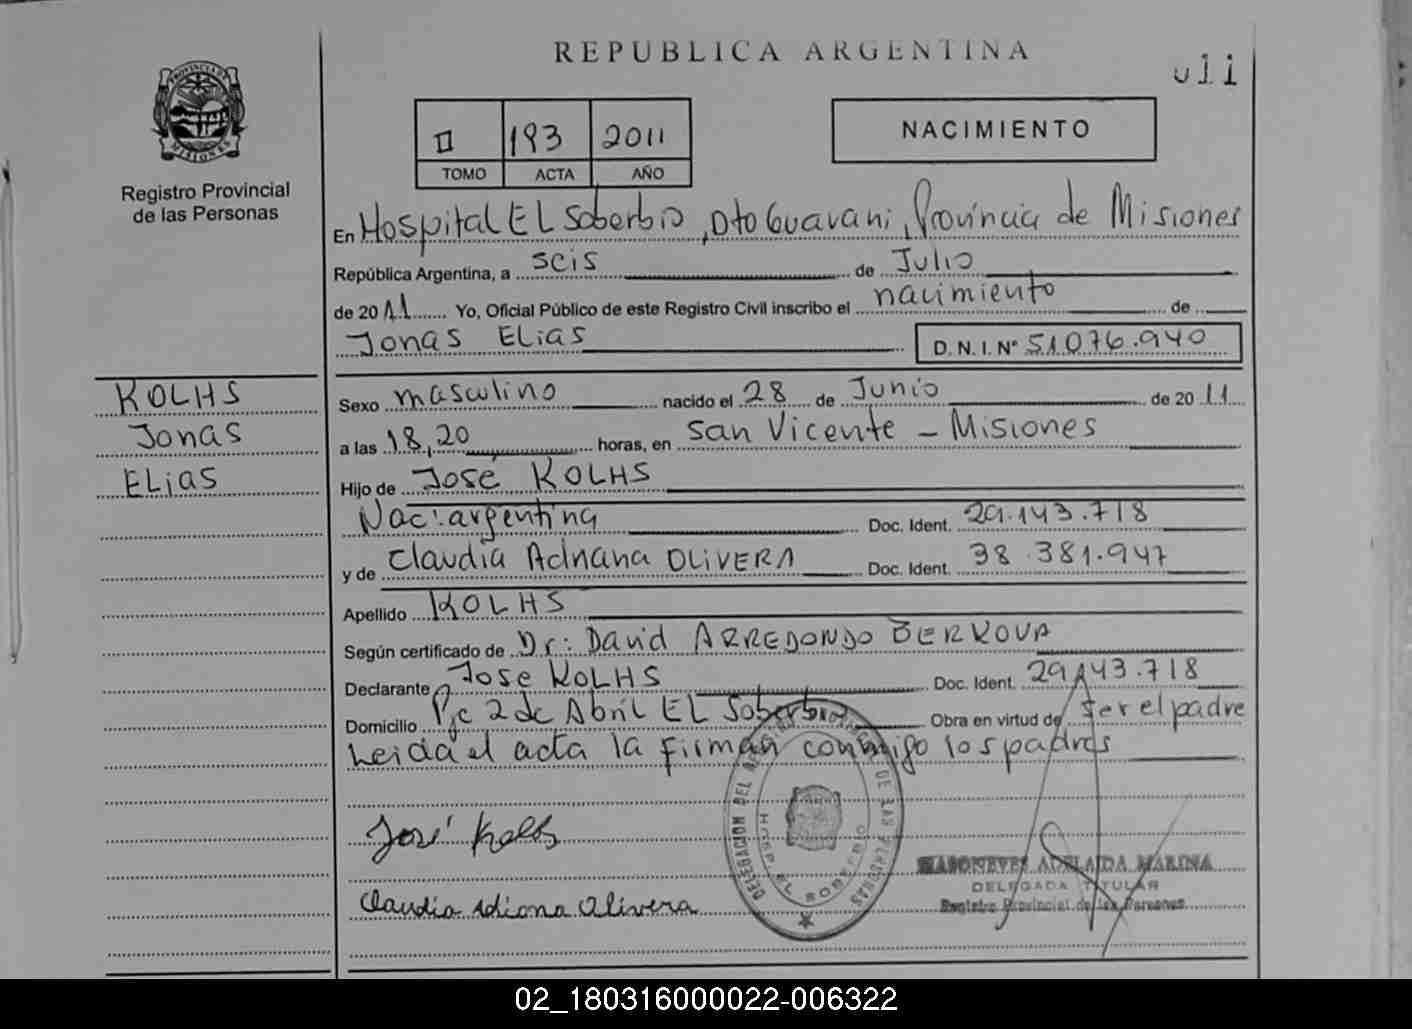 REPUBLICA ARGENTINA
011
PROVINCIA DE
MISIONES
Registro Provincial
de las Personas
II 193 2011
TOMO ACTA AÑO
NACIMIENTO
En Hospital EL Soberbio, Dto Guarani, Provincia de Misiones
República Argentina, a seis de Julio
de 2011 Yo, Oficial Público de este Registro Civil inscribo el nacimiento de
Jonas Elias D.N.I. Nº 51.076.940
KOLHS
Jonas
ELias
Sexo masculino nacido el 28 de Junio de 2011
a las 18,20 horas, en San Vicente - Misiones
Hijo de José KOLHS
Nac: argentina Doc. Ident. 29.143.718
y de Claudia Adriana OLIVERA Doc. Ident. 38.381.947
Apellido KOLHS
Según certificado de Dr: David ARREDONDO BERKOVA
Declarante Jose KOLHS Doc. Ident. 29.143.718
Domicilio Pje 2 de Abril EL Soberbio Obra en virtud de ser el padre
Leida el acta la firman conmigo los padres
José Kolhs
Claudia Adriana Olivera
DELEGACION DEL REGISTRO PROVINCIAL DE LAS PERSONAS
HOSP. EL SOBERBIO
ADELAIDA MARINA
DELEGADA TITULAR
Registro Provincial de las Personas
02_180316000022-006322